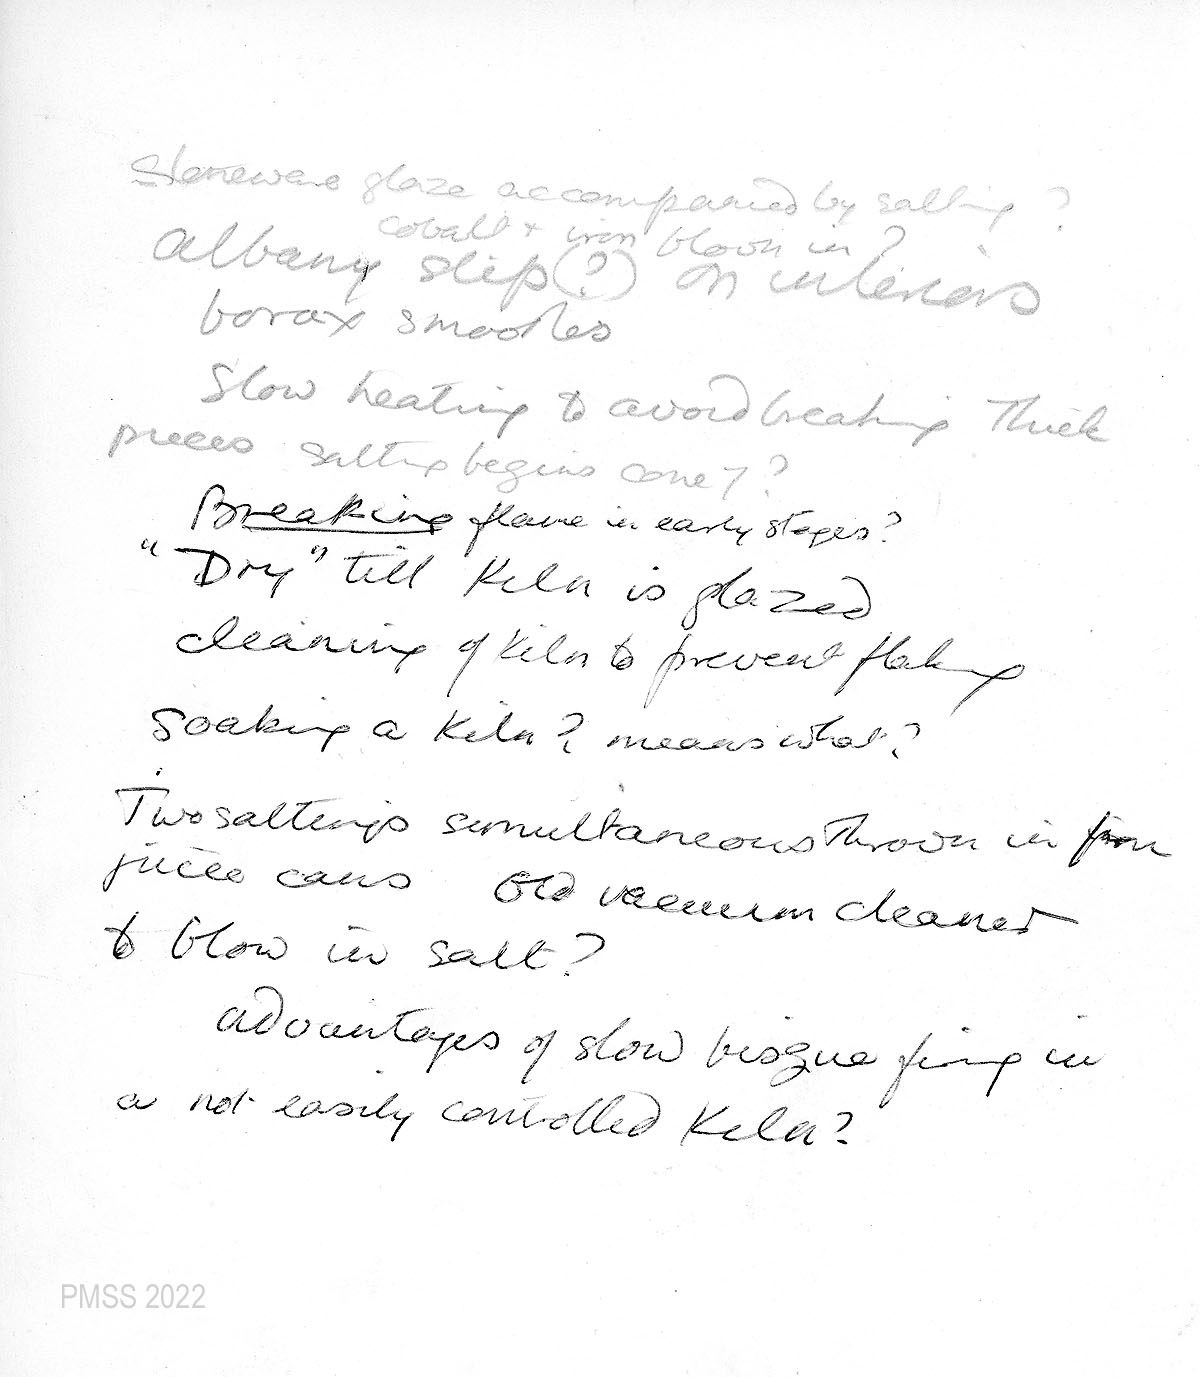 Stoneware glaze accompanied by salting ?
cobalt + iron blown in?
albany slip (?) on interiors
borax smooths
Slow heating to avoid breaking Thick
pieces salting begins cone 7 ?
Breaking flame in early stages?
"Dry" till Kiln is glazed
cleaning of kiln to prevent flaking
Soaking a Kiln? means what?
Two saltings simultaneous Thrown in from
juice cans Old vacuum cleaner
to blow in salt?
advantages of slow bisque firing in
a not easily controlled Kiln?
PMSS 2022